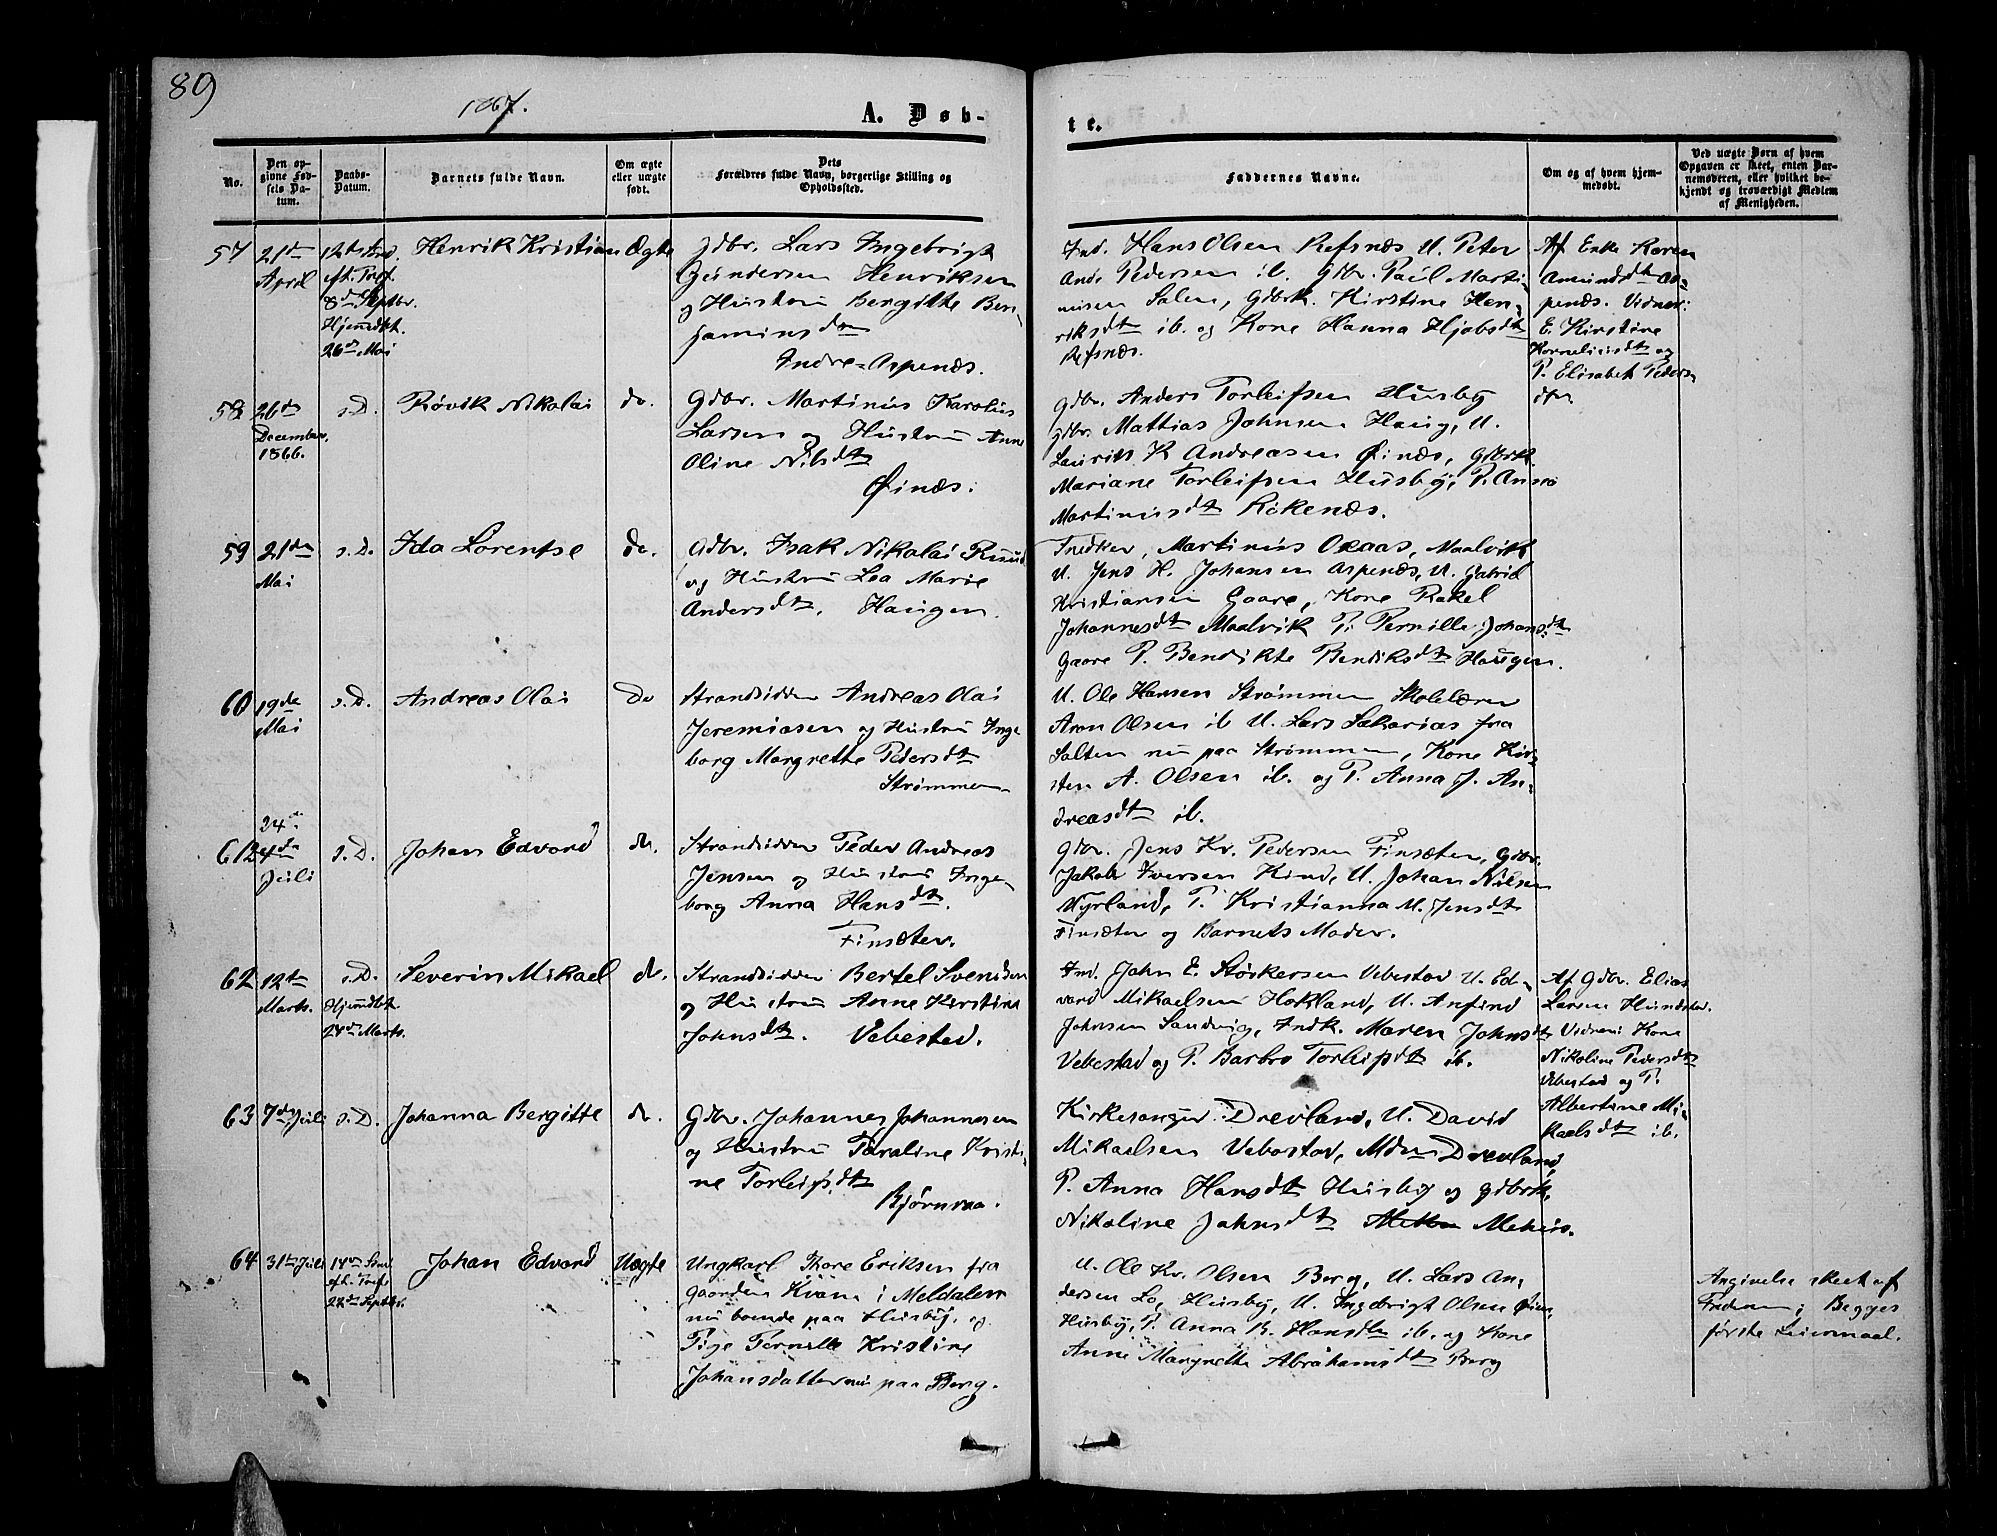 89
1867.
A. Døb-
te.
No.
Den op-
givne Fød-
sels Da-
tum.
Daabs-
Datum.
Barnets fulde Navn.
Om ægte
eller uægte
født.
Dets
Forældres fulde Navn, borgerlige Stilling og
Opholdssted.
Faddernes Navne.
Om og af hvem hjem-
medøbt.
Ved uægte Børn af hvem
Opgaven er skeet, enten Bar-
nemoderen, eller hvilket be-
kjendt og troværdigt Medlem
af Menigheden.
57
21de
April
12te Snd.
eft. Tref.
8de Septbr.
Hjemdbt.
26de Mai
Henrik Kristian
Ægte
Gdbr. Lars Ingebrigt
Gundersen Henriksen
og Hustru Bergitte Ben-
jaminsdtr
Indre-Aspenæs.
Ind. Hans Olsen Refsnæs U. Peter
And. Pedersen ib. Gdbr. Paul Marti-
niusen Salen, Gdbrk. Kirstine Hen-
riksdtr ib. og Kone Hanna Hjobsdtr
Refsnæs.
Af Enke Karen
Amundsdtr As-
penæs. Vidner:
E. Kirstine
Korneliusdtr og
P. Elisabet Peders
dtr.
58
26de
December
1866.
s.D.
Røvik Nikolai
do.
Gdbr. Martinus Karolius
Larsen og Hustru Anne
Oline Nilsdtr
Øinæs.
Gdbr. Anders Torleifsen Husby
Gdbr. Mattias Johnsen Haug, U.
Laurits K Andreasen Øinæs, Gdbrk.
Mariane Torleifsen Husby, P. Anna
Martinusdtr Røkenæs.
59
21de
Mai
s.D.
Ida Lorentse
do.
Gdbr. Isak Nikolai Knud
og Hustru Lea Marie
Andersdtr. Haugen.
Snedker, Martinus Olaas, Maalvik
U. Jens H. Johansen Aspenæs, U. Gabriel
Kristiansen Gaare, Kone Rakel
Johannesdtr Maalvik P. Pernille Johansdtr
Gaare P. Bendikte Bendiksdtr Haugen.
60
19de
Mai
s.D.
Andreas Olai
Do
Strandsidder Andreas Olai
Jeremiasen og Hustru Inge
borg Margrette Pedersdtr
Strømmen
U. Ole Hansen Strømmen Skolelærer
Aron Olsen ib U. Lars Sakarias fra
Salten nu paa Strømmen, Kone Kir-
sten A. Olsen ib. og P. Anna J. An-
dreasdtr ib.
61
24de
4de
Juli
s.D.
Johan Edvard
do.
Strandsidder Peder Andreas
Jensen og Hustru Inge-
borg Anna Hansdtr.
Finsæter.
Gdbr. Jens Kr. Pedersen Finsæter, Gdbr.
Jakob Iversen Kind, U. Johan Nilsen
Myrland, P. Kristianna M. Jensdtr
Finsæter og Barnets Moder.
62
12te
Marts.
s.D.
Hjemdbt
24de Marts.
Severin Mikael
do.
Strandsidder Bertel Svendsen
og Hustru Anne Kirstina
Johnsdtr. Vebestad.
Ind. John E. Størkersen Vebestad U. Ed-
vard Mikaelsen Hokland, U. Anfind
Johnsen Sandvig, Indk. Maren Johnsdtr
Vebestad og P. Barbro Torleifsdtr ib.
Af Gdbr. Elias
Larsen Hundstad.
Vidner: Kone
Nikoline Pedersdtr
Vebestad og P.
Albertine Mi-
kaelsdtr ib.
63
7de Juli
s.D.
Johanna Bergitte
do.
Gdbr. Johannes Johannesen
og Hustru Taraline Kristi-
ne Torleifsdtr
Bjørnraa.
Kirkesanger Drevland, U. David
Mikaelsen Vebostad, Mdm Drevland,
P. Anna Hansdtr Husby og Gdbrk.
Nikoline Jahnsdtr Melen Mehus.
64
31te Juli
14de Snd
eft. Tref.
22de Septbr.
Johan Edvard
Uægte
Ungkarl Thore Eriksen fra
Gaarden Kvam i Meldalen
nu boende paa Husby, og
Pige Pernille Kristine
Johansdatter nu paa Berg.
U. Ole Kr. Olsen Berg, U. Lars An-
dersen Lo, Husby, U. Ingebrigt Olsen Øien,
Husby, P. Anna B. Hansdtr ib. og Kone
Anne Margrette Abrahamsdtr Berg
Angivelse skeet af
Faderen; Begges
første Leiermaal.